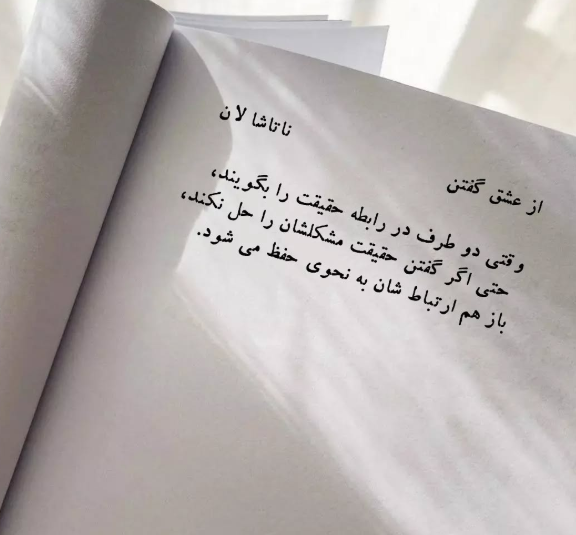 ناتاشا لان
از عشق گفتن
وقتی دو طرف در رابطه حقیقت را بگویند،
حتی اگر گفتن حقیقت مشکلشان را حل نکند،
باز هم ارتباط شان به نحوی حفظ می شود.